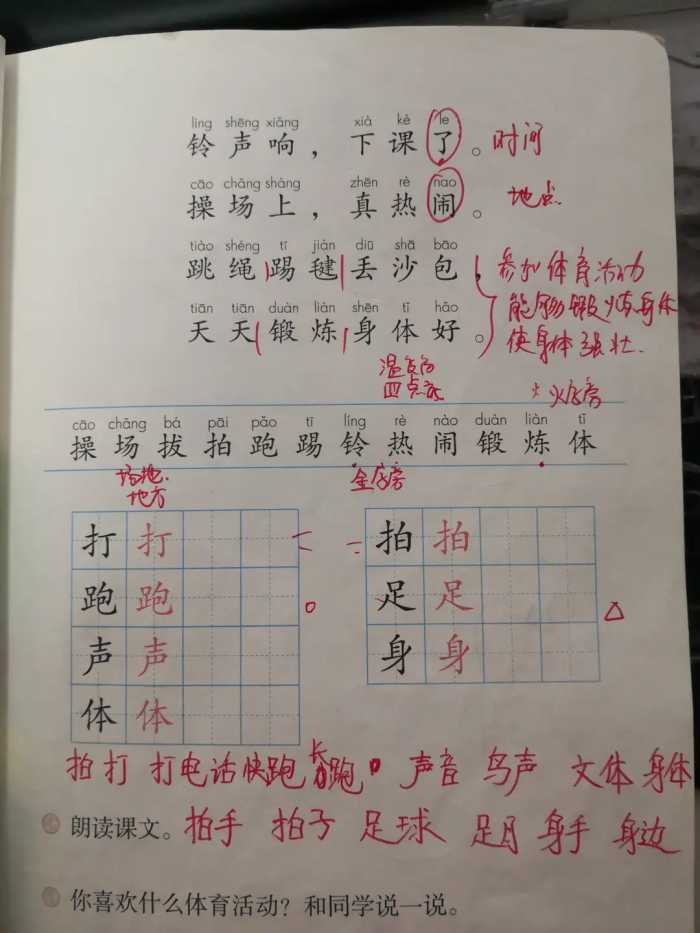 líng shēng xiǎng xià kè le
铃声响，下课了。时间
cāo chǎng shàng zhēn rè nao
操场上，真热闹。地点
tiào shéng tī jiàn diū shā bāo
跳绳踢毽丢沙包，参加体育活动
能够锻炼身体
tiān tiān duàn liàn shēn tǐ hǎo
天天锻炼身体好。使身体强壮.
四点底
火字旁
cāo chǎng bá pāi pǎo tī líng rè nào duàn liàn tǐ
操场拔拍跑踢铃热闹锻炼体
场地.
地方
金字旁
打打 拍拍
跑跑 足足
声声 身身
体体
拍打 打电话 快跑 长跑 声音 鸟声 文体 身体
朗读课文。拍手 拍子 足球 足月 身手 身边
你喜欢什么体育活动？和同学说一说。